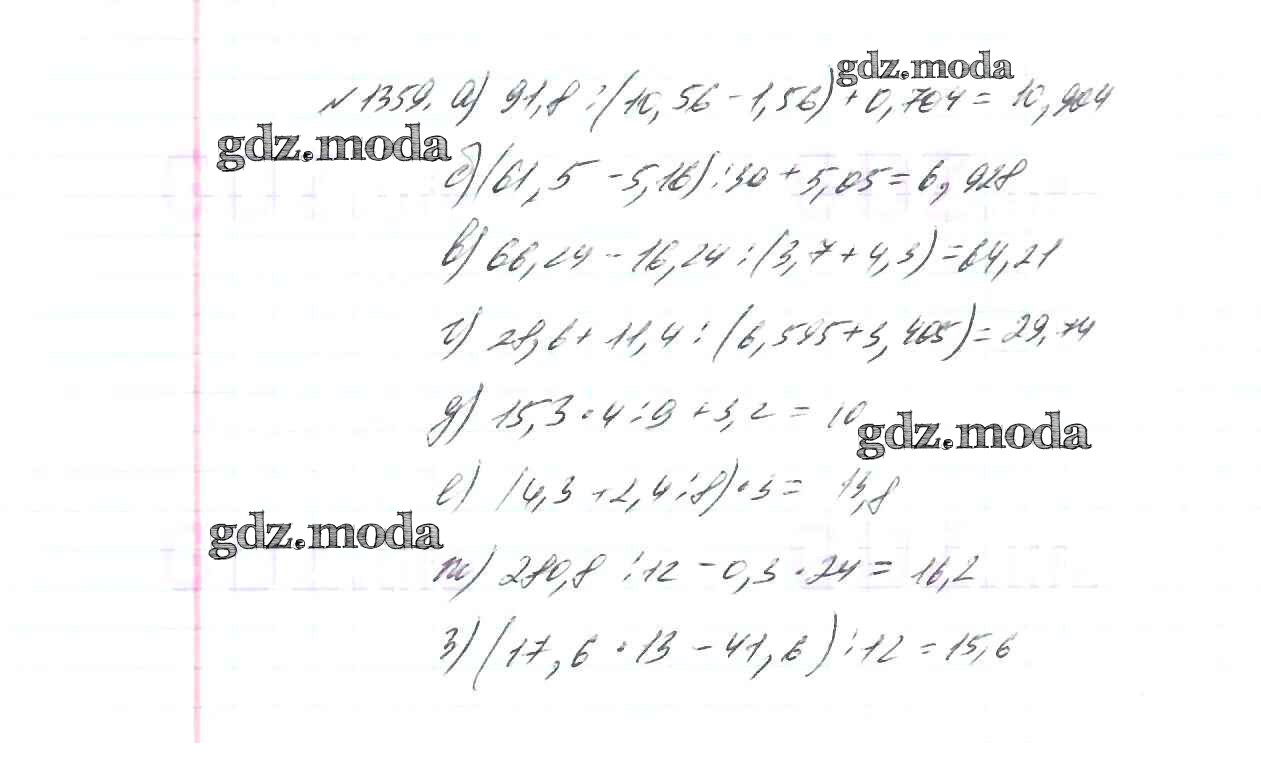 №1359. а) 91,8 : (10,56 - 1,56) + 0,704 = 10,904
gdz.moda
gdz.moda
б) (61,5 - 5,16) : 30 + 5,05 = 6,928
в) 66,24 - 16,24 : (3,7 + 4,3) = 64,21
г) 28,6 + 11,4 : (6,595 + 3,405) = 29,74
д) 15,3 · 4 : 9 + 3,2 = 10
gdz.moda
е) (4,3 + 2,4 : 8) · 3 = 13,8
gdz.moda
ж) 280,8 : 12 - 0,3 · 24 = 16,2
з) (17,6 · 13 - 41,6) : 12 = 15,6